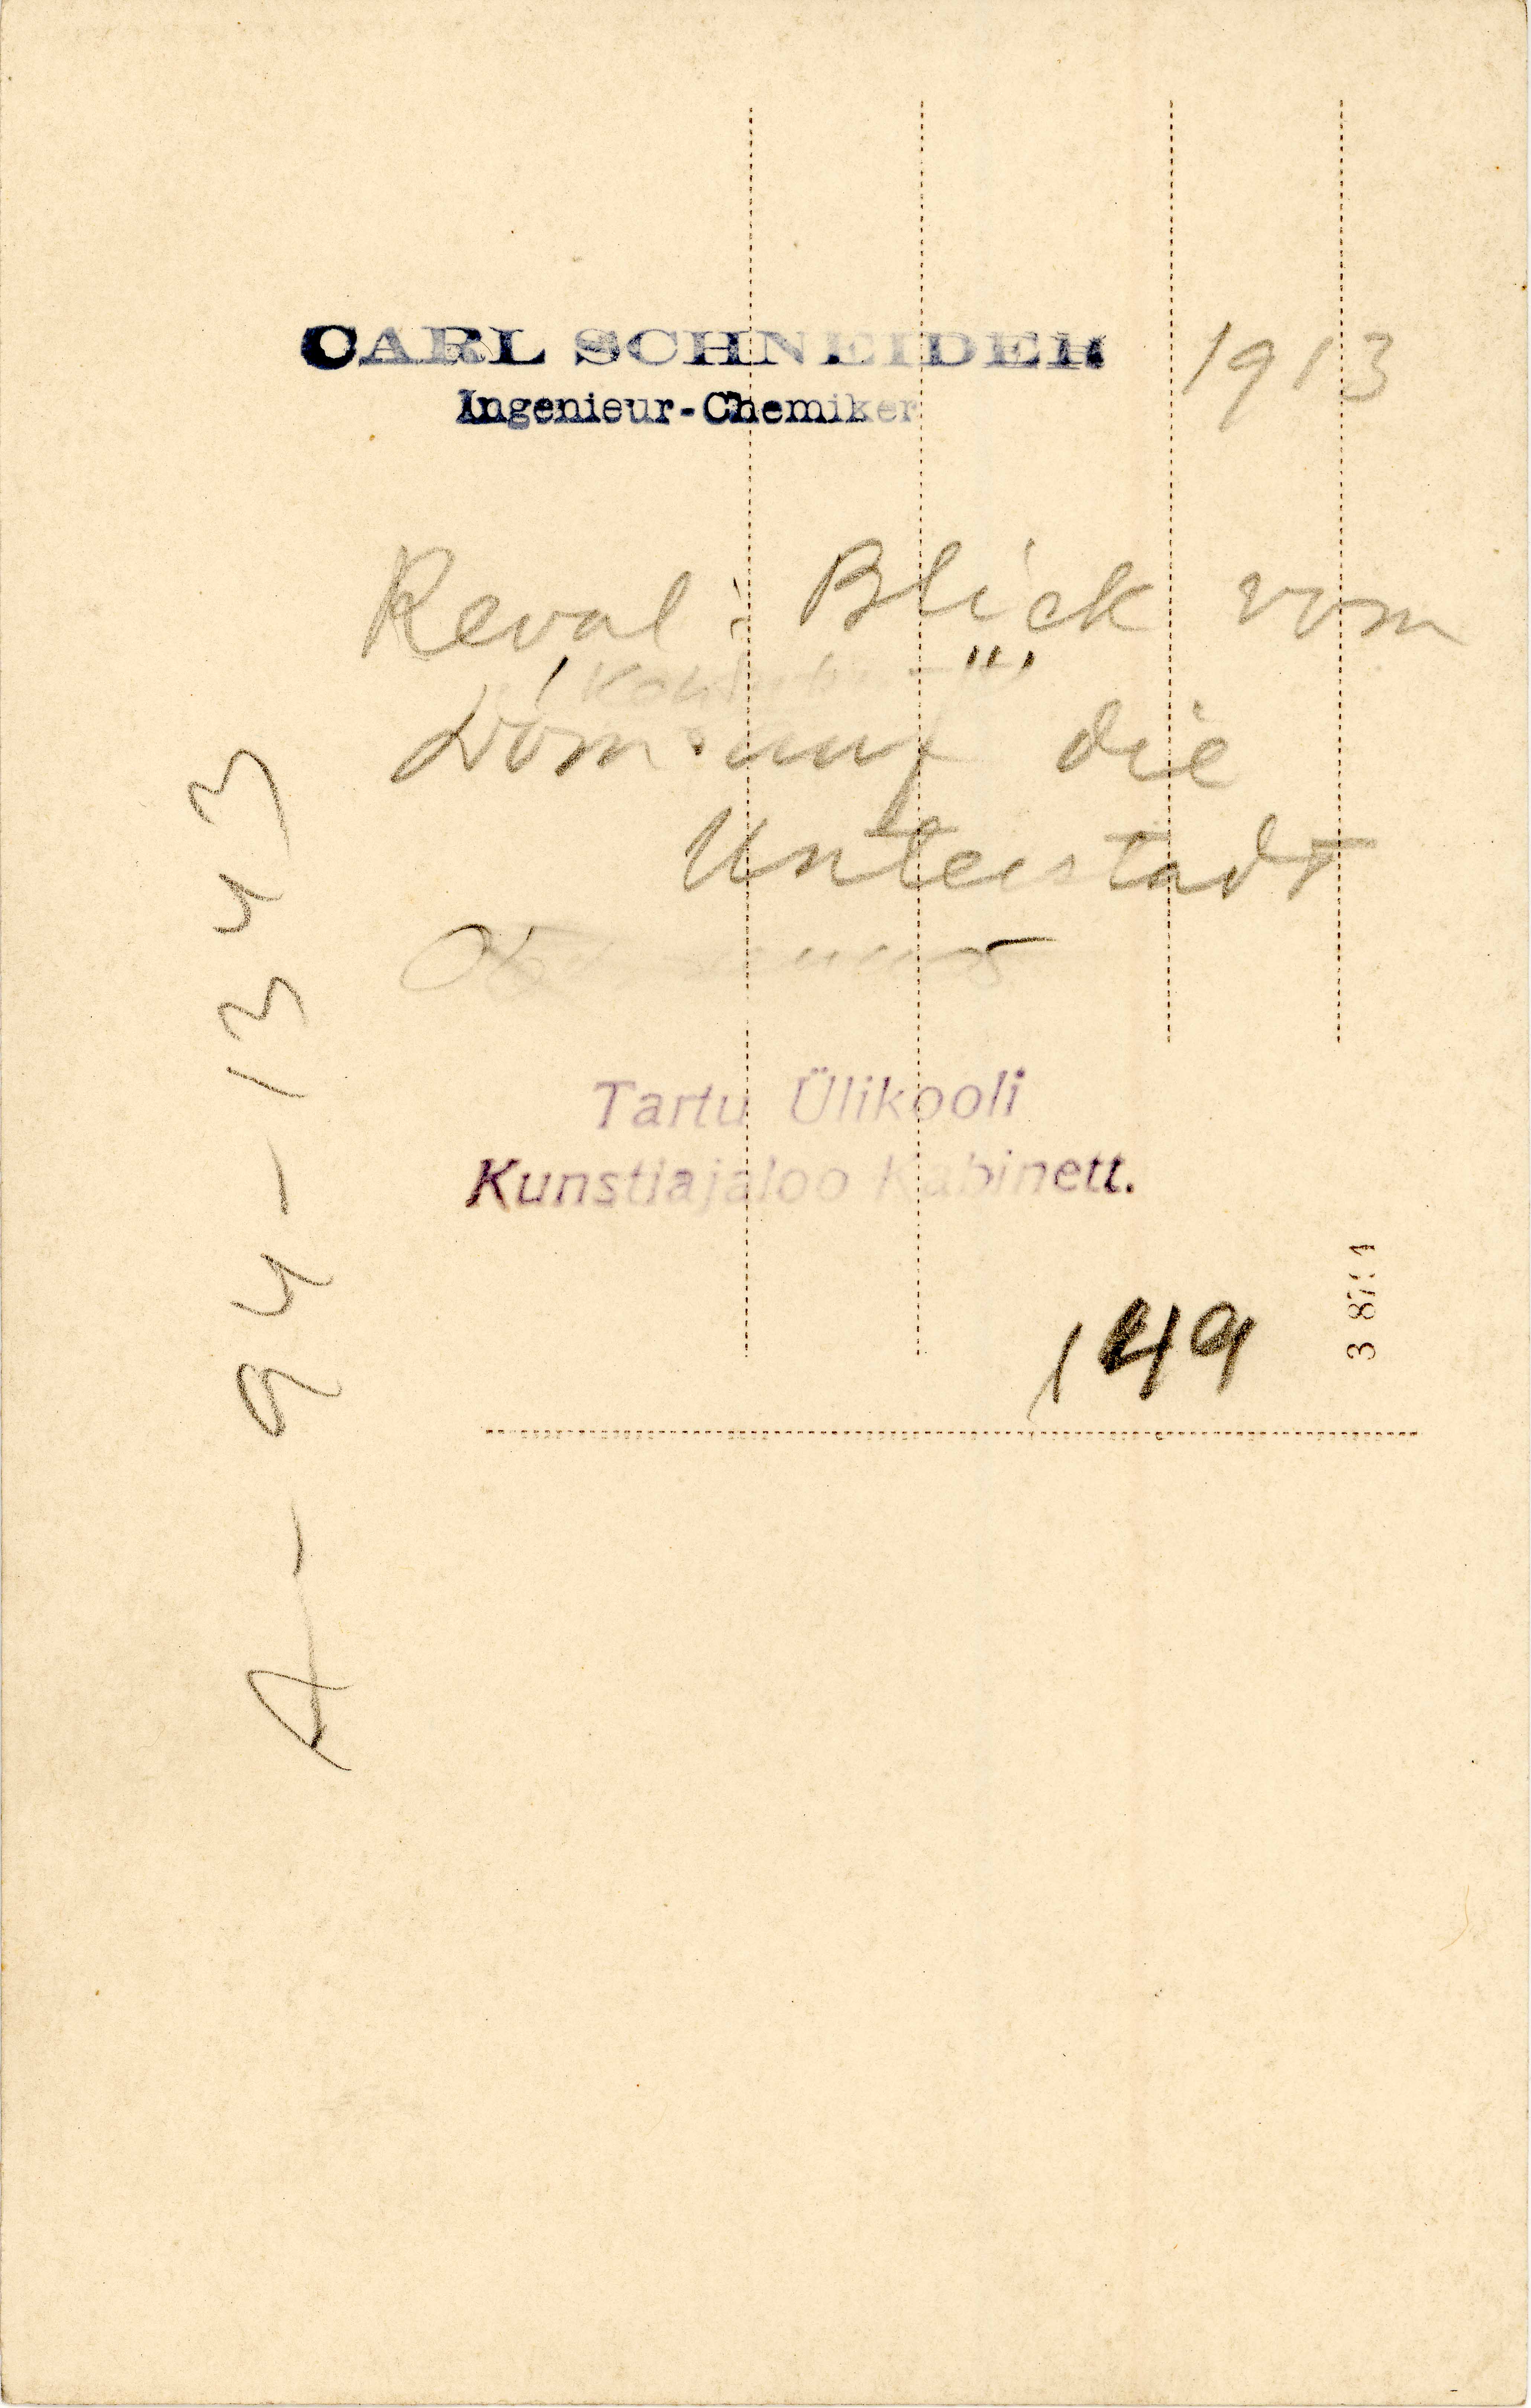 CARL SCHNEIDER
Ingenieur-Chemiker
1913
Reval: Blick vom
Dom auf die
Unterstadt
Tartu Ülikooli
Kunstiajaloo Kabinett.
149
A-94-1343